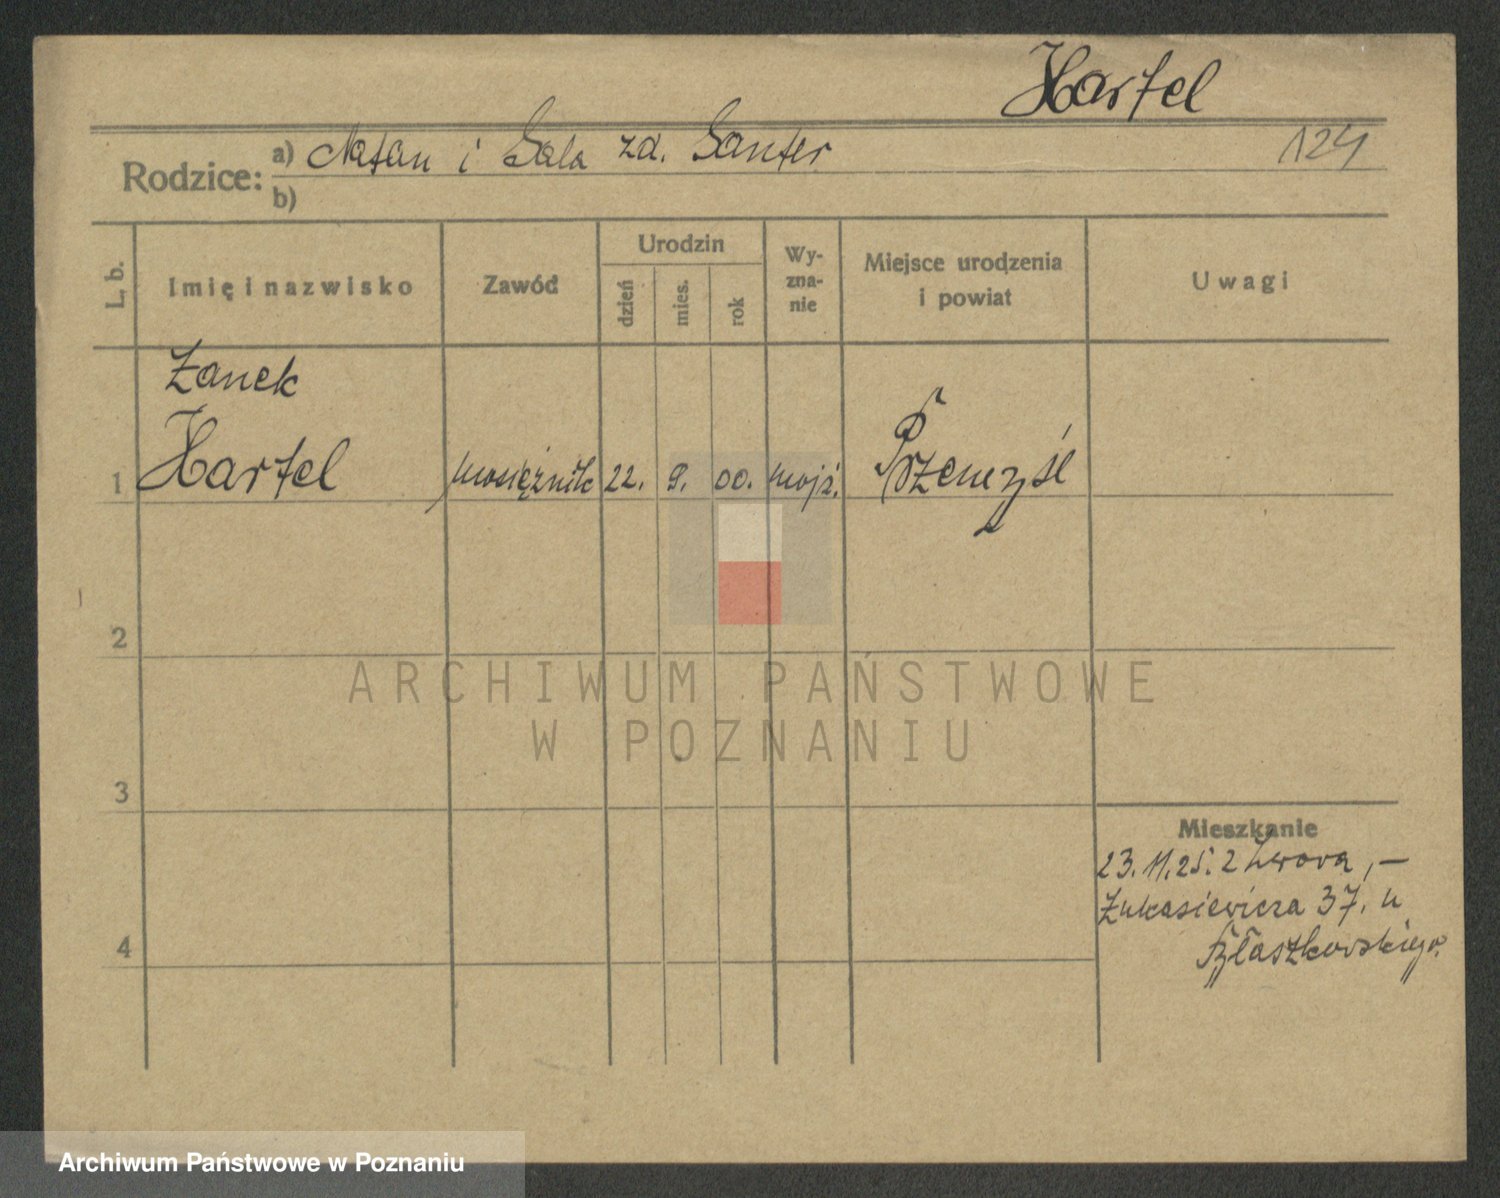 Hartel
124
Rodzice: a) Natan i Sala zd. Santer
b)
L. b. Imię i nazwisko Zawód Urodzin dzień mies. rok Wyznanie Miejsce urodzenia i powiat Uwagi
Żanek
1 Hartel mosiężnik 22. 9. 00. mojż. Przemyśl
2
ARCHIWUM PAŃSTWOWE
W POZNANIU
3
Mieszkanie
23.11.25. z Lwowa, –
Łukasiewicza 37. u
4
Archiwum Państwowe w Poznaniu